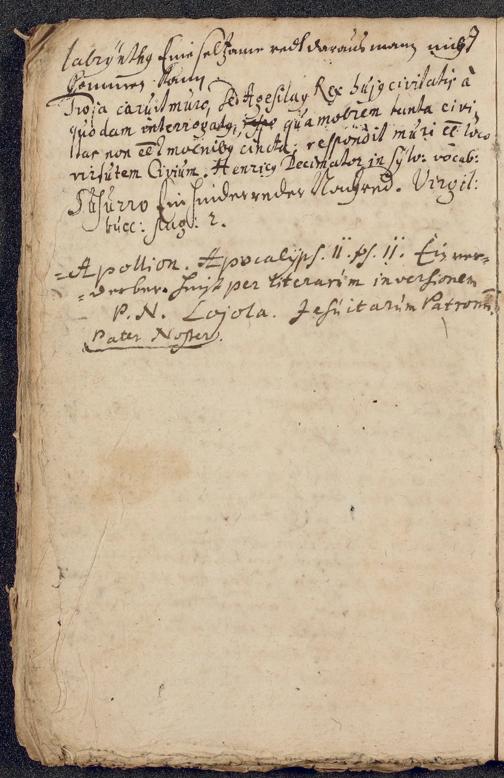 labÿnthg Eine selzame redt daraus man nicht
kommen kann
Troja caruit muro, Sed Agesilag Rex hujg civitatis à
quodam interrogatg, quamobrem tanta civi
tas non eēt moenibg cincta; respondit muri eē loco
virtutem Civium. Henricg Decimator in sylv: vocab:
Susurro Ein hinderreder Virgil:
bucc: 2.
=Apollion. Apocalyps. II. ps. II. Ein ver=
=derber. hujg per literarūm inversionem
P. N. Lojola. Jesuitarūm Patronū
Pater Noster.